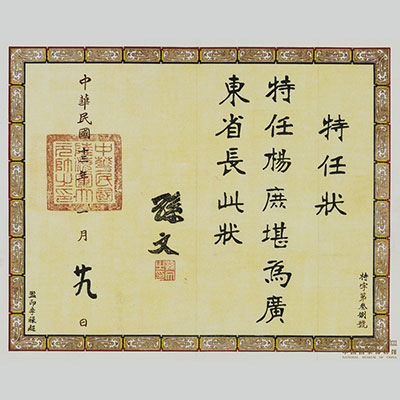 特任狀
特任楊庶堪為廣
東省長此狀
孫文
中華民國十三年二月廿九日
特字第叁捌號
監印李祿超
NATIONAL MUSEUM OF CHINA